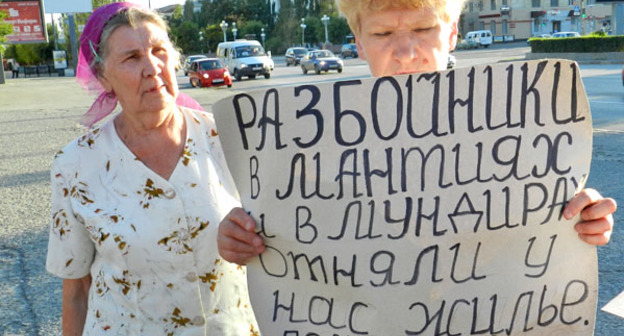 РАЗБОЙНИКИ
В МАНТИЯХ
И В МУНДИРАХ
ОТНЯЛИ У
НАС ЖИЛЬЕ.